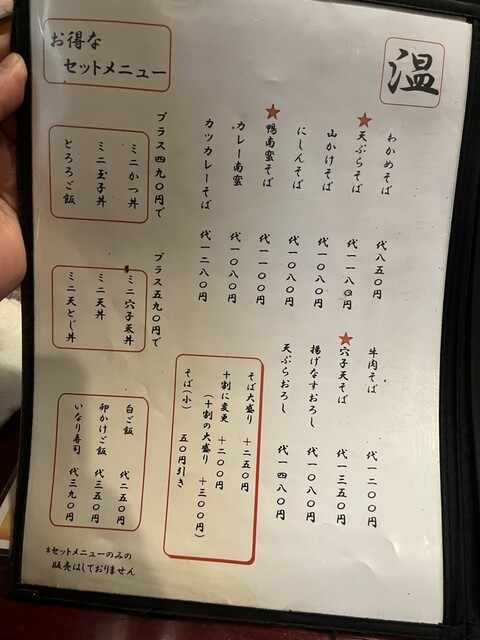 温
わかめそば 代八五〇円
★天ぷらそば 代一一八〇円
山かけそば 代一〇八〇円
にしんそば 代一〇八〇円
★鴨南蛮そば 代一一〇〇円
カレー南蛮 代一〇八〇円
カツカレーそば 代一二八〇円
牛肉そば 代一二〇〇円
★穴子天そば 代一三五〇円
揚げなすおろし 代一〇八〇円
天ぷらおろし 代一四八〇円
そば大盛り +二五〇円
十割に変更 +二〇〇円
(十割の大盛り +三〇〇円)
そば(小) 五〇円引き
お得な
セットメニュー
プラス四九〇円で
ミニかつ丼
ミニ玉子丼
とろろご飯
プラス五九〇円で
ミニ穴子天丼
ミニ天丼
ミニ天とじ丼
白ご飯 代二五〇円
卵かけご飯 代三五〇円
いなり寿司 代三九〇円
*セットメニューのみの
販売はしておりません